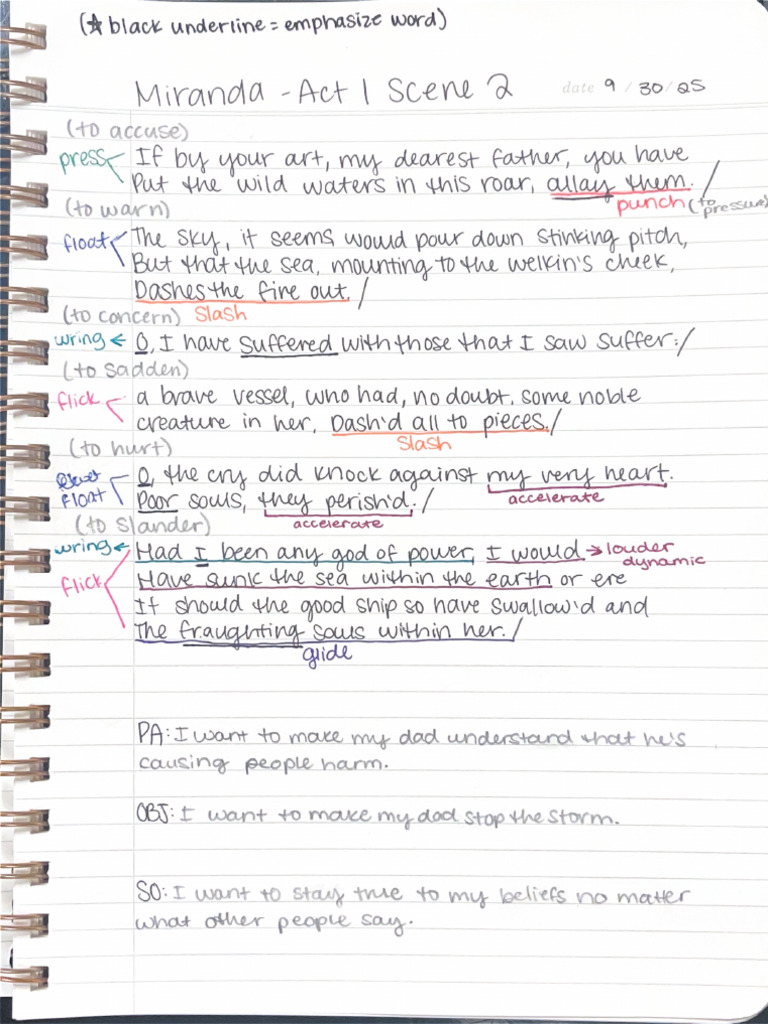 (☆ black underline = emphasize word)
Miranda - Act 1 Scene 2 date 9 / 30 / 25
(to accuse)
press If by your art, my dearest father, you have
Put the wild waters in this roar, allay them. /
(to warn) punch (to pressure)
float The sky, it seems would pour down stinking pitch,
But that the sea, mounting to the welkin's cheek,
Dashes the fire out. /
(to concern) Slash
wring ← O, I have suffered with those that I saw suffer: /
(to sadden)
flick a brave vessel, who had, no doubt, some noble
creature in her, Dash'd all to pieces. /
(to hurt) Slash
O, the cry did knock against my very heart.
float Poor souls, they perish'd. / accelerate
(to slander) accelerate
wring ← Had I been any god of power, I would → louder dynamic
flick Have sunk the sea within the earth or ere
It should the good ship so have swallow'd and
The fraughting souls within her. /
glide
PA: I want to make my dad understand that he's
causing people harm.
OBJ: I want to make my dad stop the storm.
SO: I want to stay true to my beliefs no matter
what other people say.